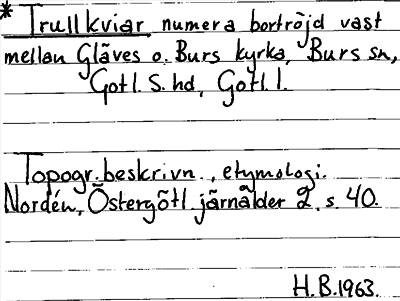 * Trullkviar numera bortröjd vast
mellan Gläves o. Burs kyrka, Burs sn,
Gotl. S. hd, Gotl. l.
Topogr. beskrivn., etymologi.
Nordén, Östergötl järnålder 2. s. 40.
H.B.1963.